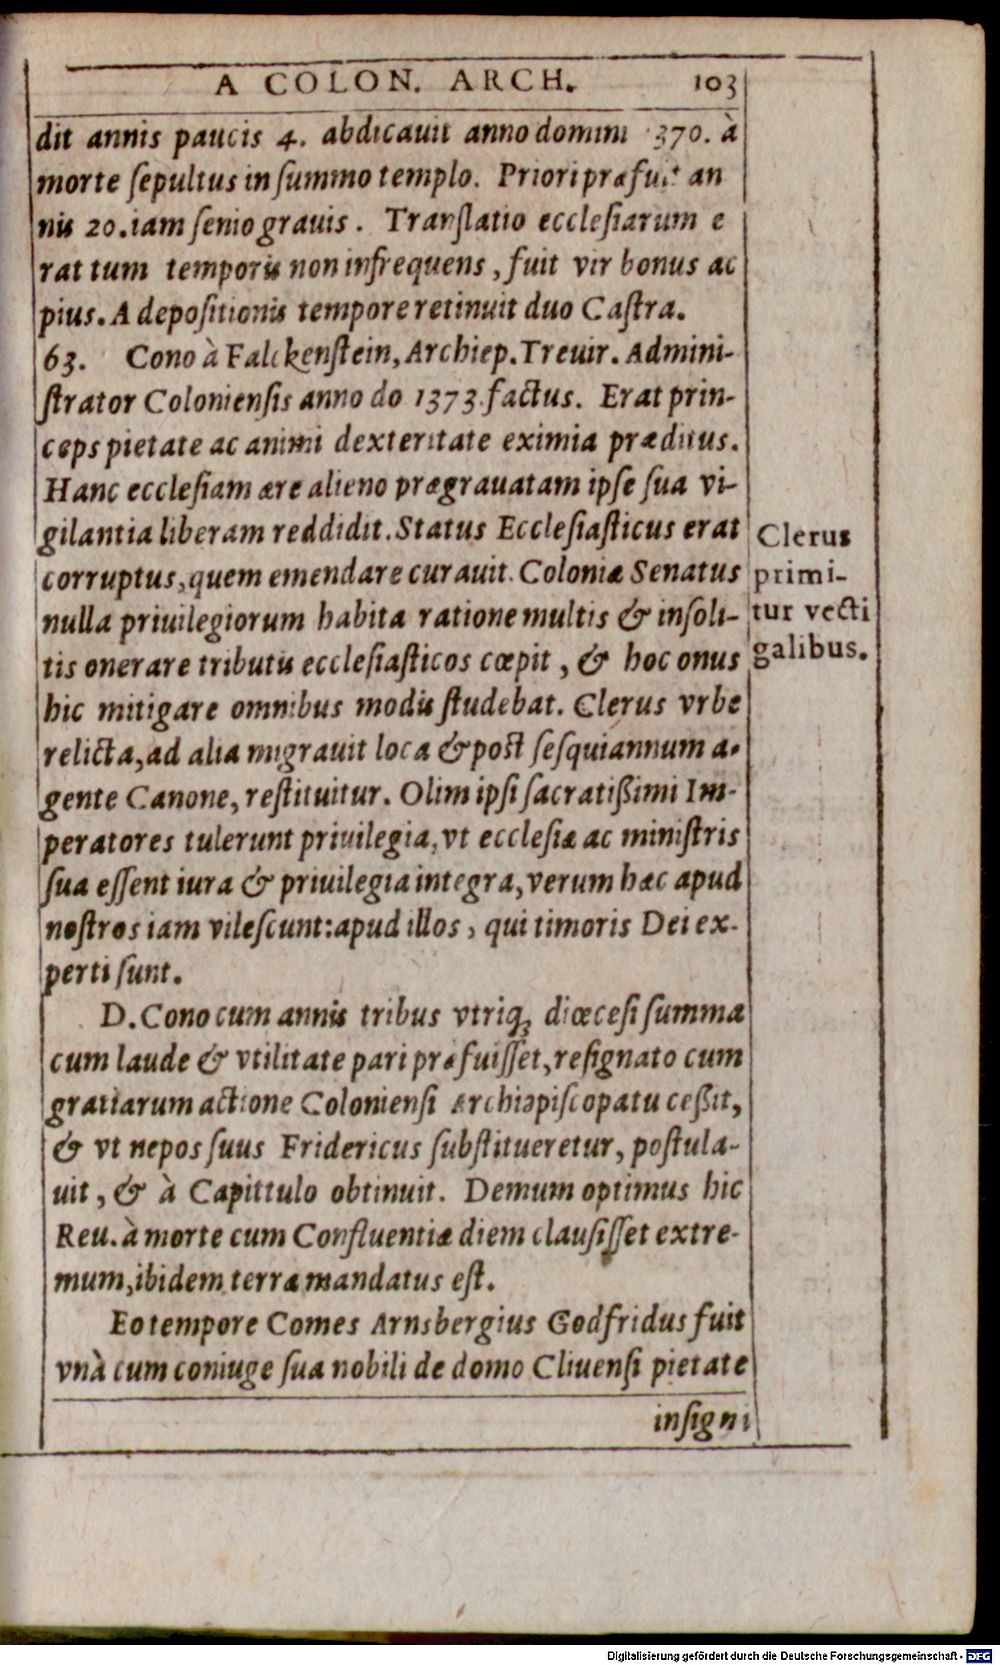 A COLON. ARCH. 103
dit annis paucis 4. abdicauit anno domini 370. à
morte ſepultus in ſummo templo. Priori præfuit an
nis 20. iam ſenio grauis. Tranſlatio eccleſiarum e
rat tum temporis non infrequens, fuit vir bonus ac
pius. A depoſitionis tempore retinuit duo Caſtra.
63. Cono à Falckenſtein, Archiep. Treuir. Admini-
ſtrator Colonienſis anno do 1373. factus. Erat prin-
ceps pietate ac animi dexteritate eximia præditus.
Hanc eccleſiam ære alieno prægrauatam ipſe ſua vi-
gilantia liberam reddidit. Status Eccleſiaſticus erat
corruptus, quem emendare curauit. Coloniæ Senatus
nulla priuilegiorum habita ratione multis & inſoli-
tis onerare tributis eccleſiaſticos cœpit, & hoc onus
hic mitigare omnibus modis ſtudebat. Clerus vrbe
relicta, ad alia migrauit loca & poſt ſeſquiannum a-
gente Canone, reſtituitur. Olim ipſi ſacratißimi Im-
peratores tulerunt priuilegia, vt eccleſiæ ac miniſtris
ſua eſſent iura & priuilegia integra, verum hæc apud
noſtros iam vileſcunt: apud illos, qui timoris Dei ex-
perti ſunt.
D. Cono cum annis tribus vtriqꝫ diœceſi ſumma
cum laude & vtilitate pari præfuiſſet, reſignato cum
gratiarum actione Colonienſi Archiepiſcopatu ceßit,
& vt nepos ſuus Fridericus ſubſtitueretur, poſtula-
uit, & à Capittulo obtinuit. Demum optimus hic
Reu. à morte cum Confluentiæ diem clauſiſſet extre-
mum, ibidem terræ mandatus eſt.
Eo tempore Comes Arnsbergius Godfridus fuit
vnà cum coniuge ſua nobili de domo Cliuenſi pietate
inſigni
Clerus
primi-
tur vecti
galibus.
Digitalisierung gefördert durch die Deutsche Forschungsgemeinschaft - DFG